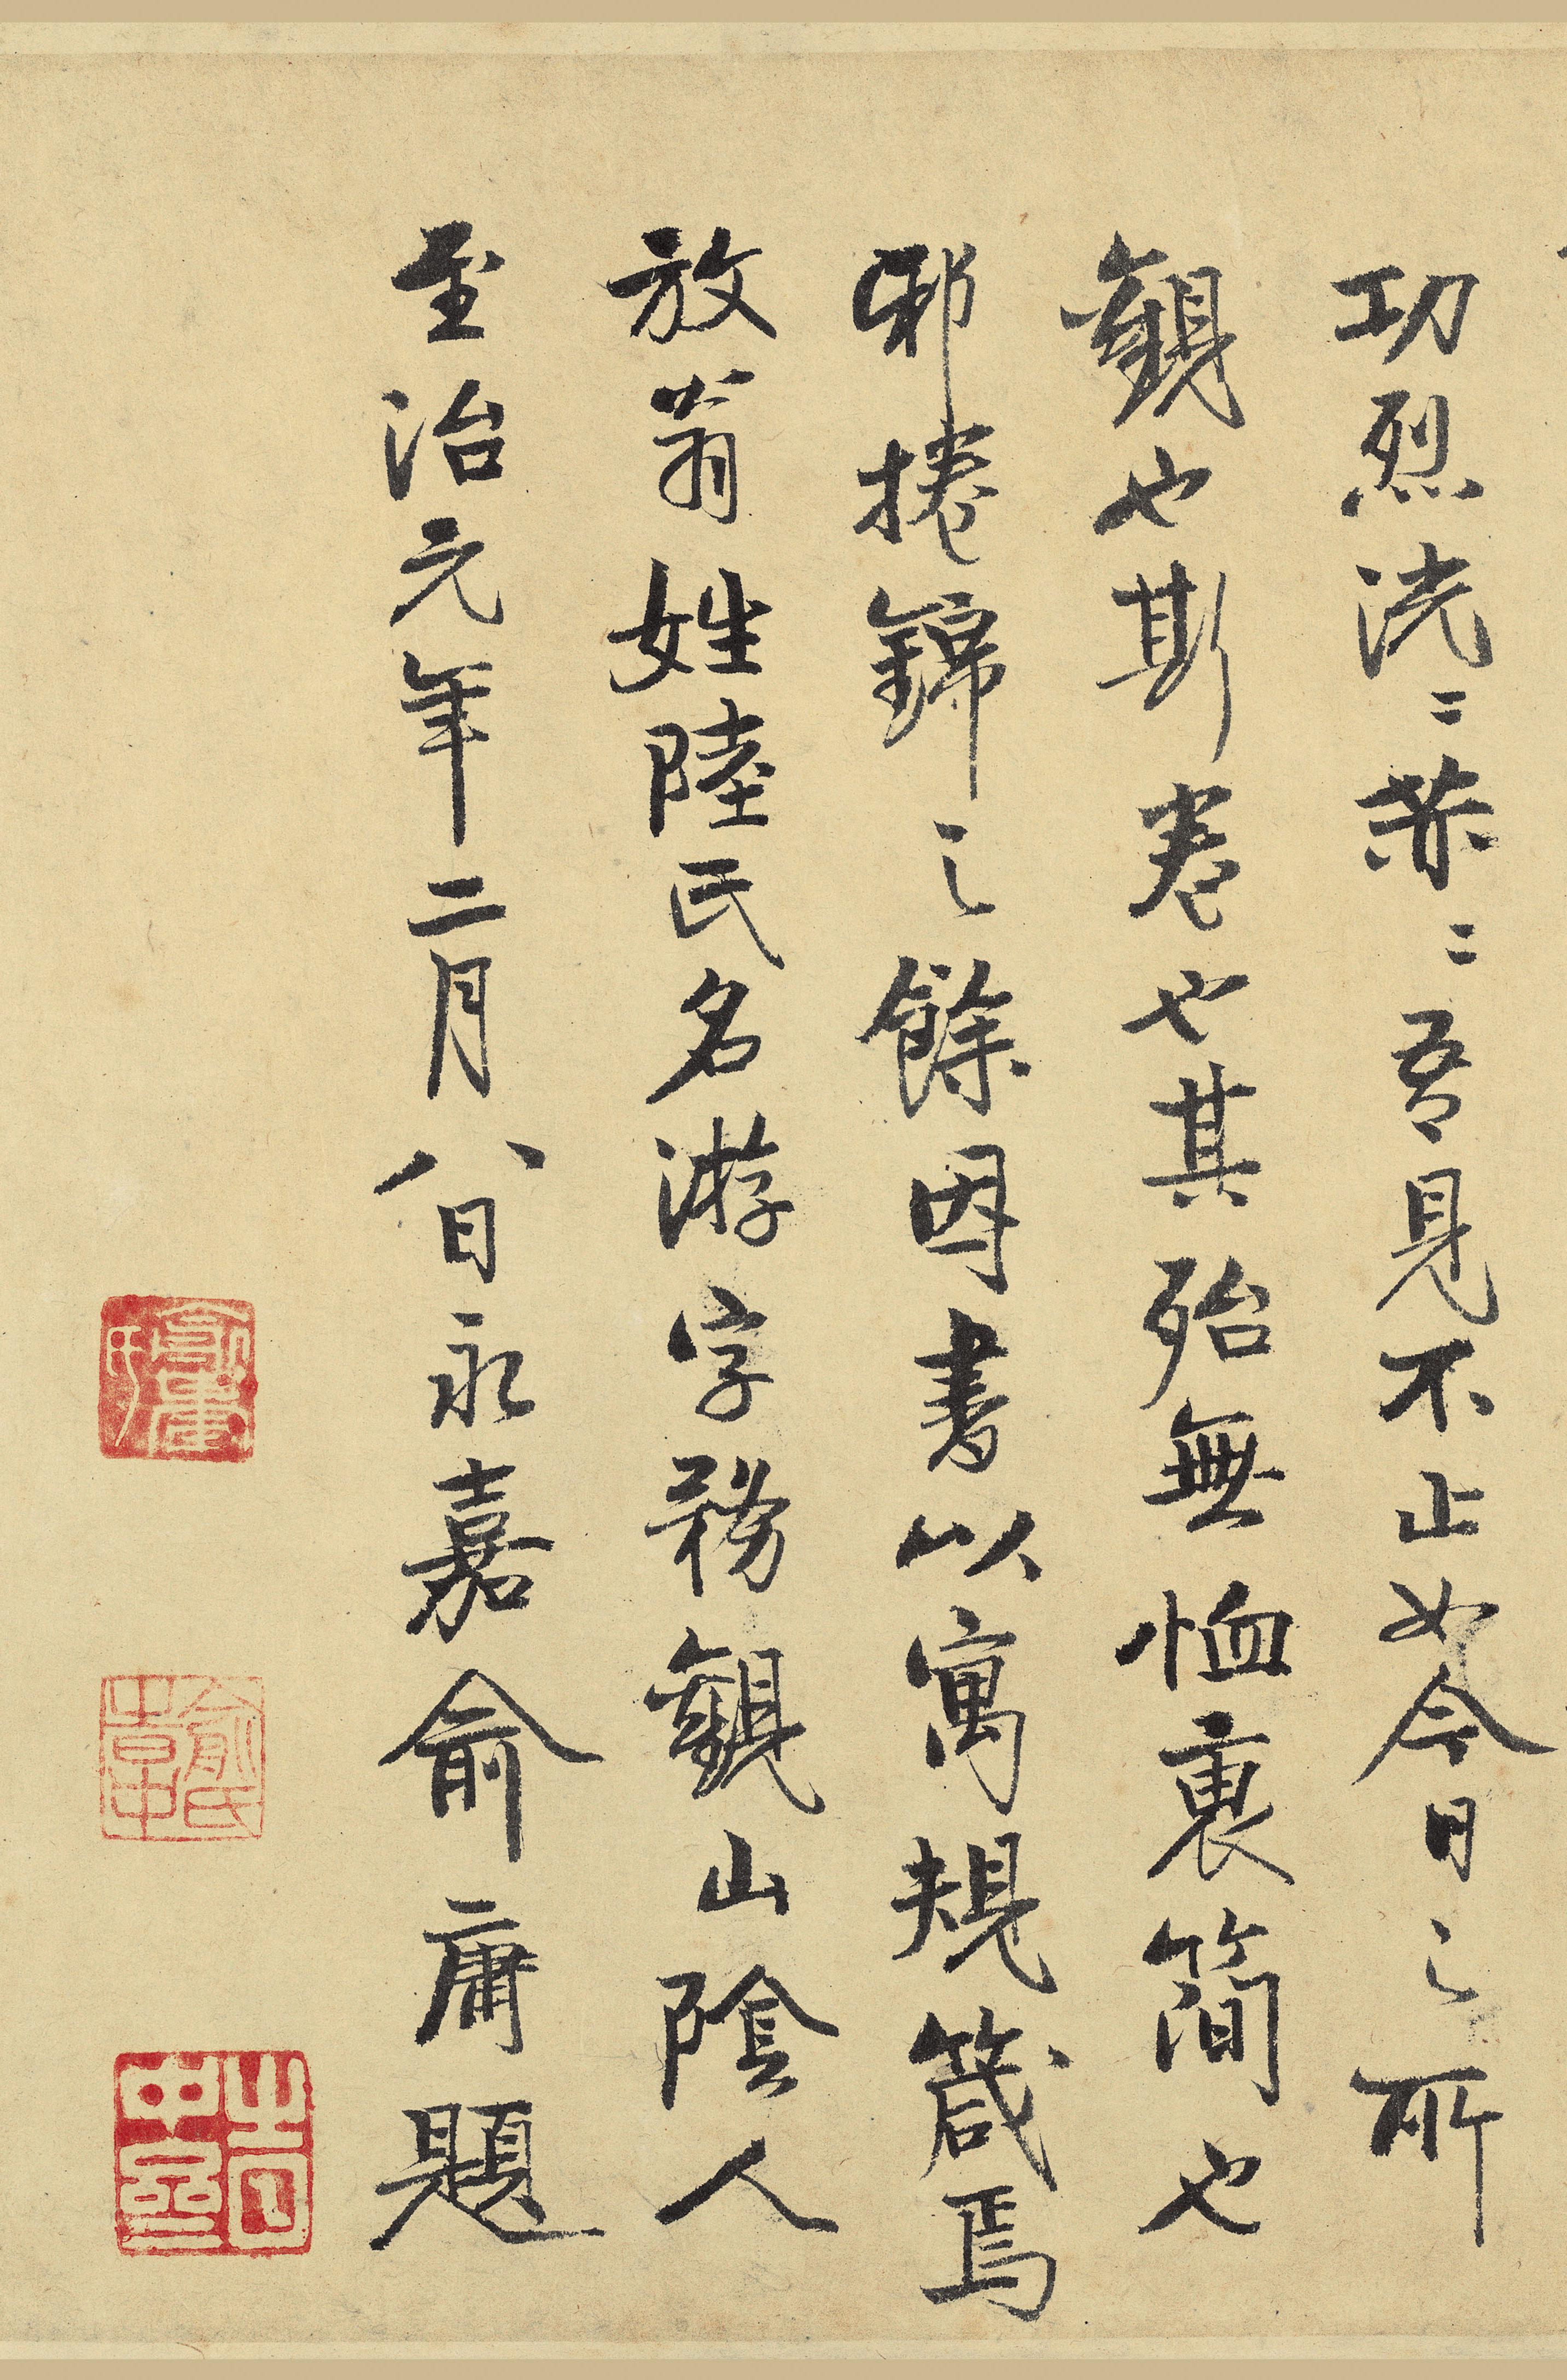 功烈洸〻赫〻吾見不止如今日之所
觀也斯卷也其殆無恤裏簡也
邪捲錦之餘因書以寓規箴焉
放翁姓陸氏名游字務觀山陰人
至治元年二月八日永嘉俞庸題
俞氏
中